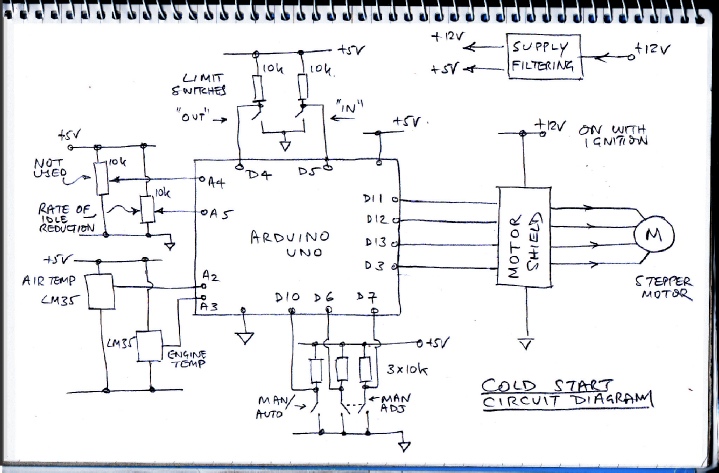 +12V
+5V
SUPPLY
FILTERING
+12V
+5V
LIMIT
SWITCHES
10k
10k
"OUT"
"IN"
+5V
+12V
ON WITH
IGNITION
+5V
NOT
USED
10k
10k
RATE OF
IDLE
REDUCTION
A4
A5
D4
D5
ARDUINO
UNO
D11
D12
D13
D3
MOTOR
SHIELD
M
STEPPER
MOTOR
+5V
AIR TEMP
LM35
LM35
ENGINE
TEMP
A2
A3
D10
D6
D7
+5V
3x10k
MAN/
AUTO
MAN
ADJ
COLD START
CIRCUIT DIAGRAM